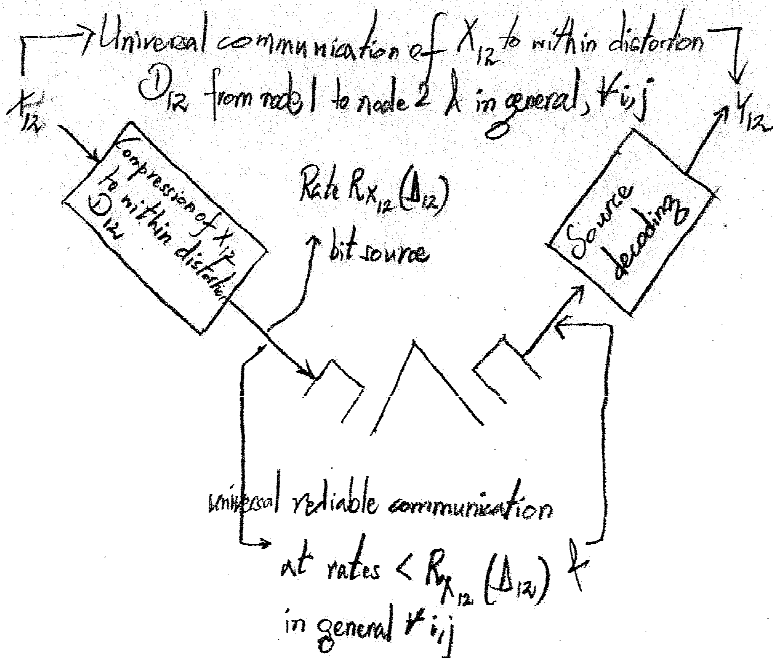 Universal communication of X12 to within distortion
D12 from node 1 to node 2 & in general, ∀ i,j
X12
Y12
Compression of X12
to within distortion
D12
Rate RX12(Δ12)
bit source
Source
decoding
universal reliable communication
at rates < RX12(Δ12) &
in general ∀ i,j